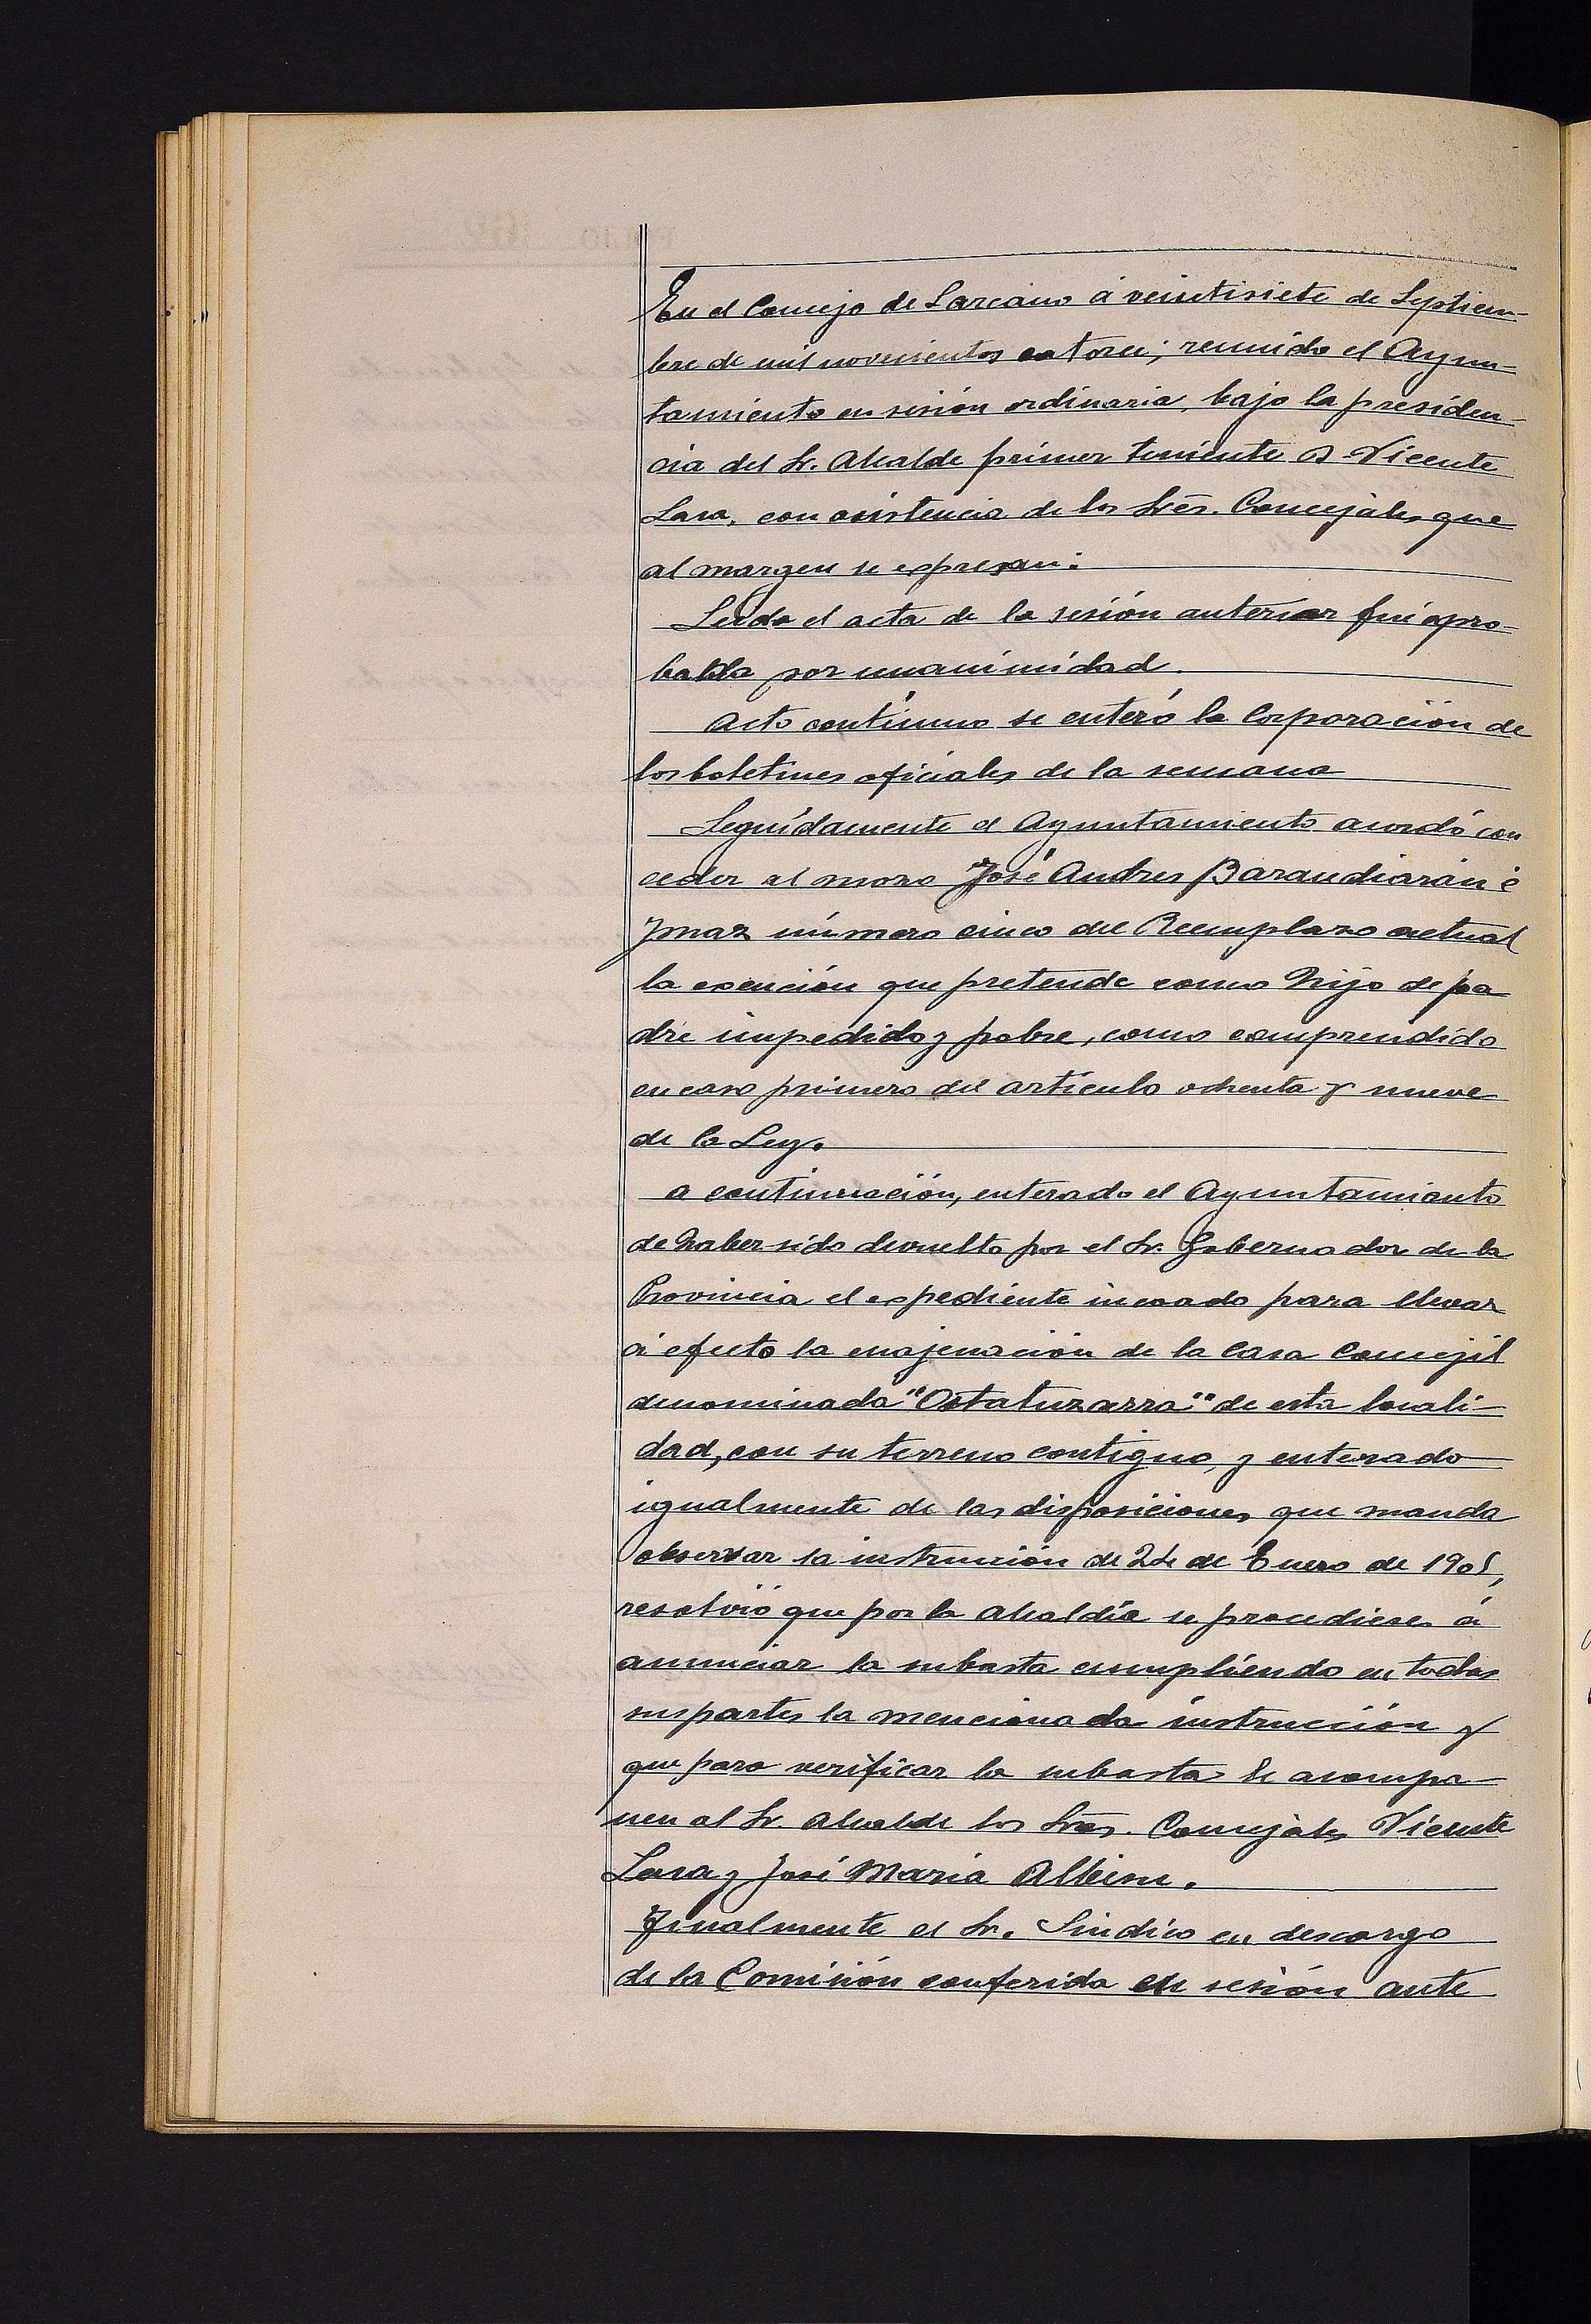 En el Concejo de Lazcano á veintisiete de Septiem-
bre de mil novecientos catorce; reunido el Ayun-
tamiento en sesión ordinaria, bajo la presiden-
cia del Sr. Alcalde primer teniente D Vicente
Lasa, con asistencia de los Srēs. Concejales que
al margen se expresan:
Leida el acta de la sesión anterior fué apro-
bada por unanimidad.
Acto contínuo se enteró la Corporación de
los boletines oficiales de la semana
Seguídamente el Ayuntamiento acordó con
ceder al mozo José Andres Barandiarán é
Ymaz número cinco del Reemplazo actual
la exención que pretende como hijo de pa
dre impedido y pobre, como comprendido
en caso primero del artículo ochenta y nueve
de la Ley.
A continuación, enterado el Ayuntamiento
de haber sido devuelto por el Sr. Gobernador de la
Provincia el expediente incoado para llevar
á efecto la enajenación de la Casa Concejil
denominada "Ostatuzarra" de esta locali-
dad, con su terreno contiguo, y enterado
igualmente de las disposiciones que manda
observar la instrucción de 24 de Enero de 1905,
resolvió que por la Alcaldía se procediese á
anunciar la subasta cumpliendo en todas
sus partes la mencionada instrucción y
que para verificar la subasta le acompa-
nen al Sr. Alcalde los Srēs. Concejales Vicente
Lasa y José María Albisu.
Finalmente el Sr. Sindico en descargo
de la Comisión conferida en sesión ante